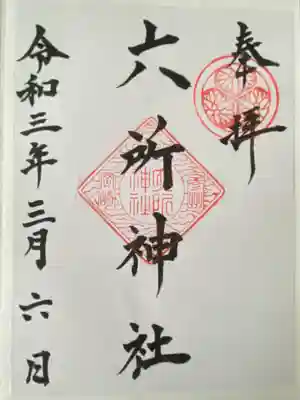 奉拝
六所神社
令和三年三月六日